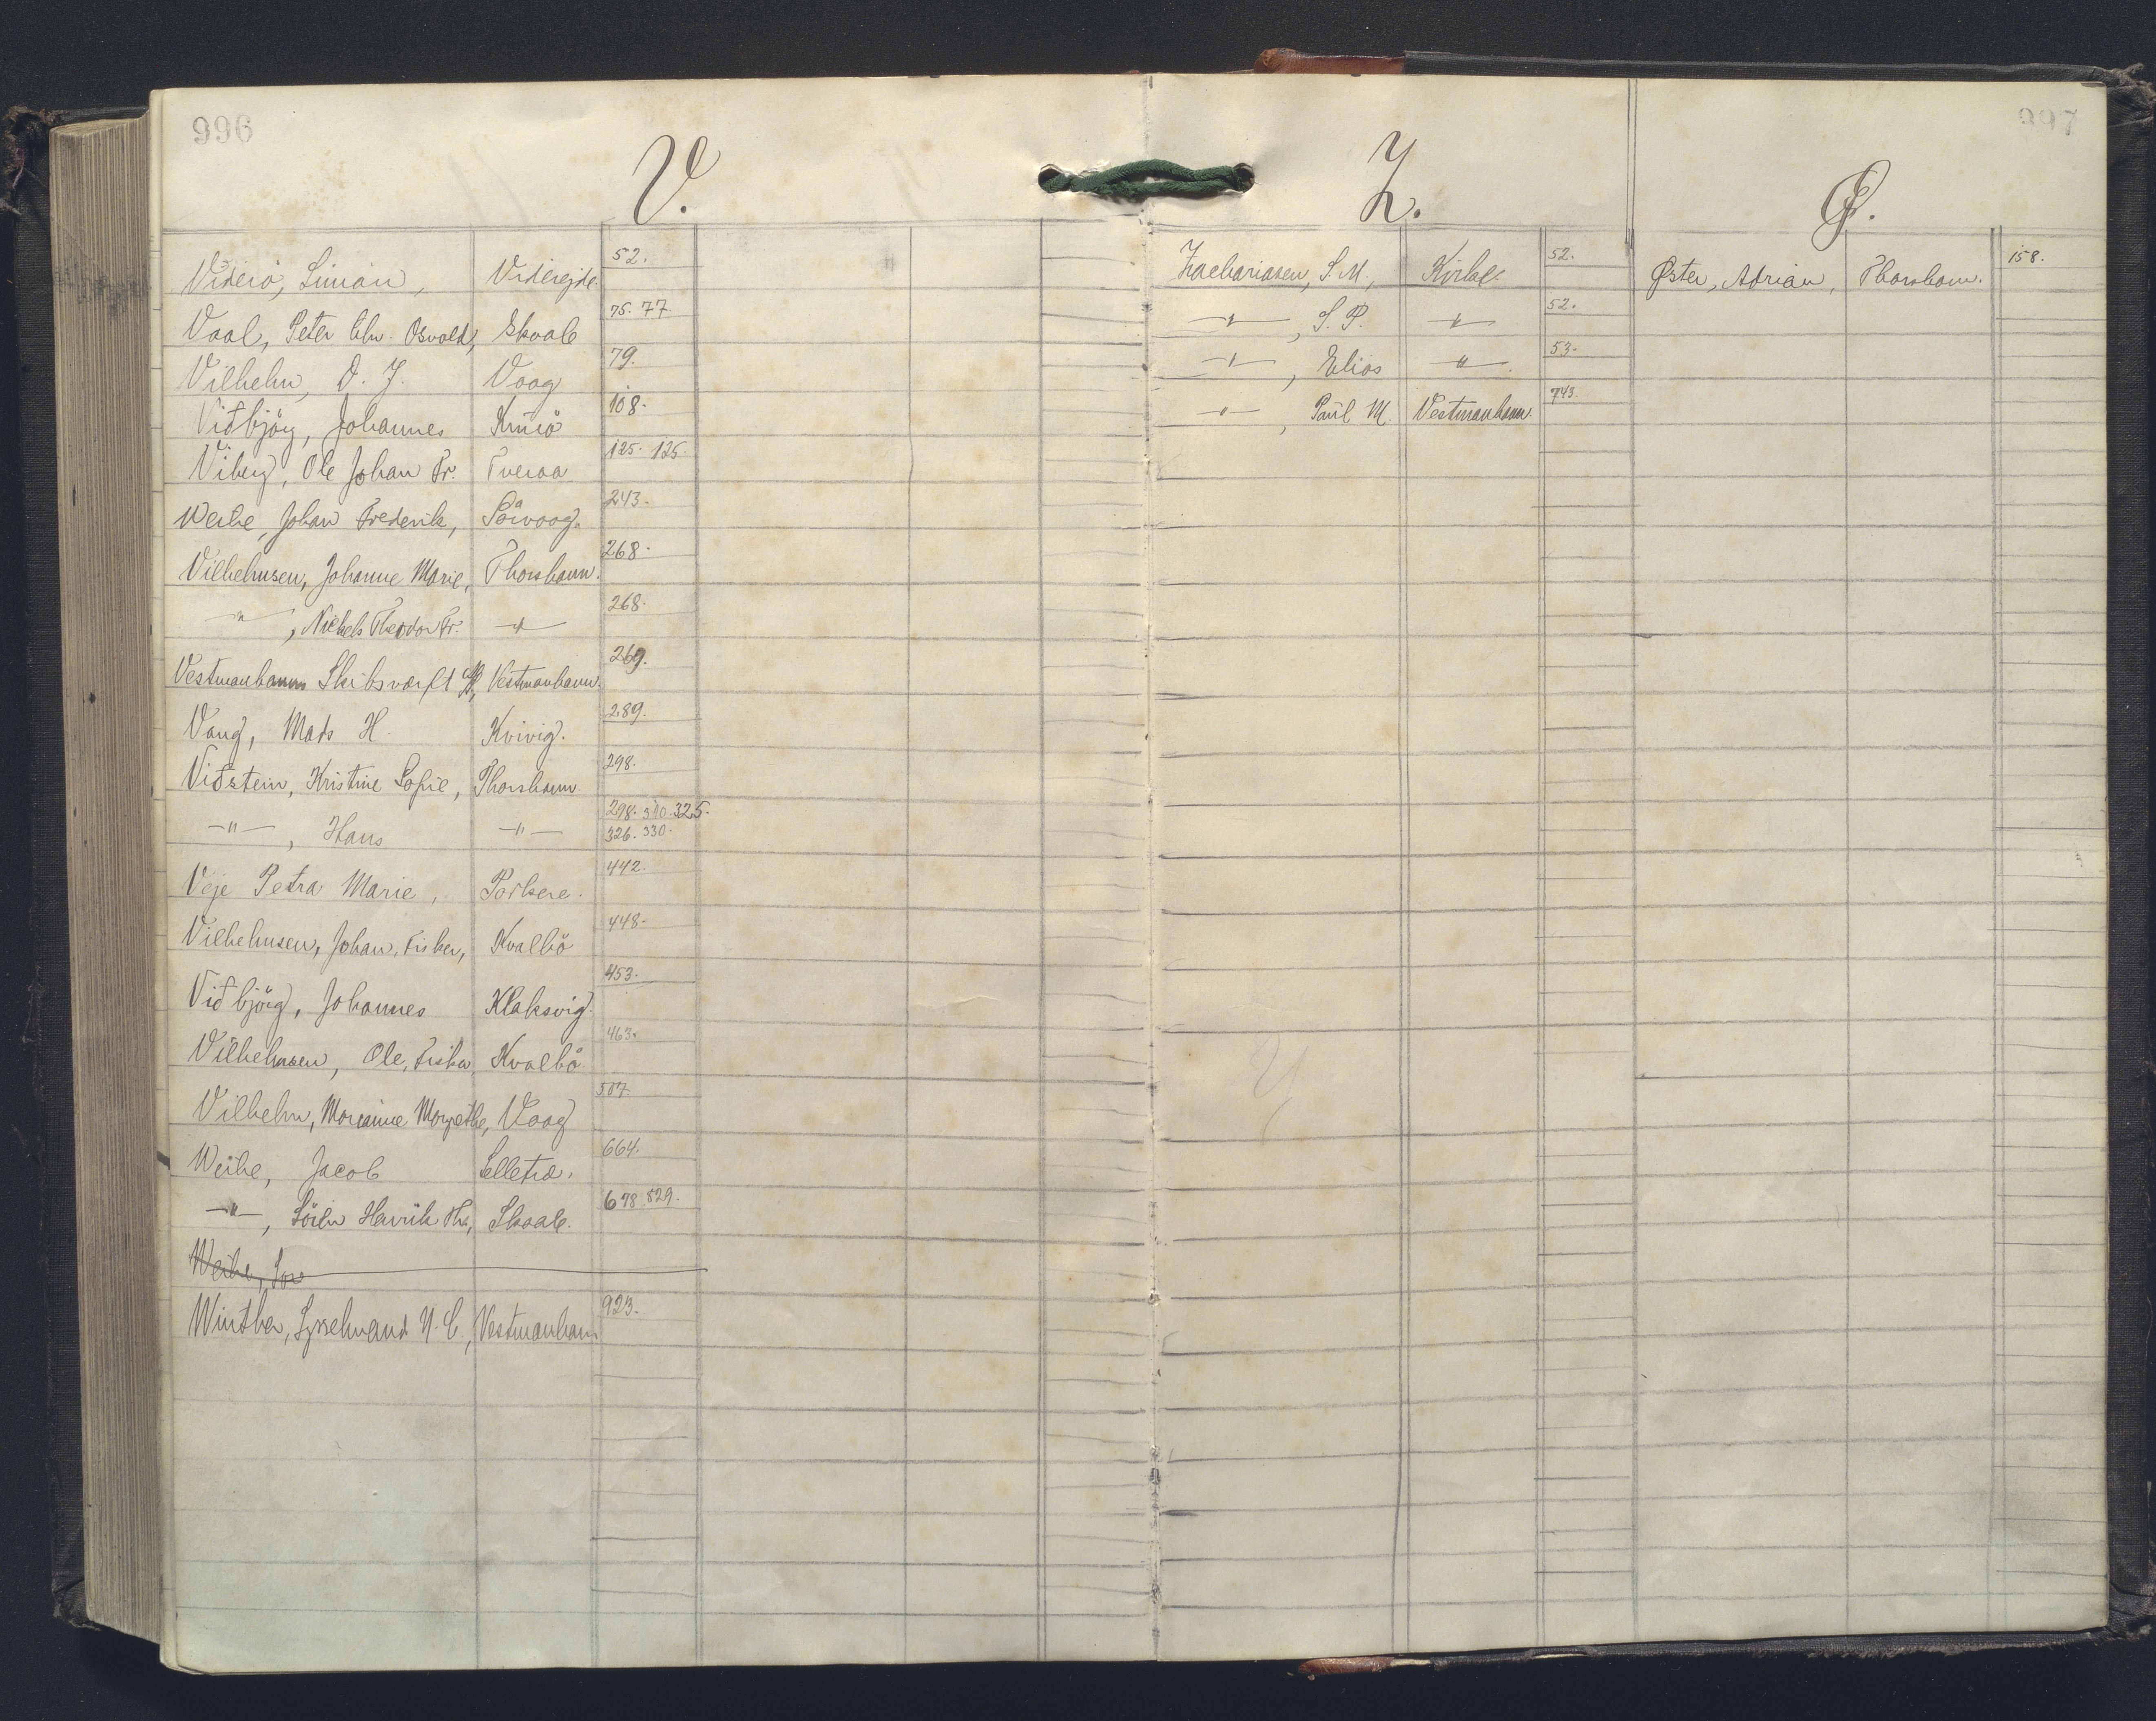 996
V.
Viderö, Simon, Viderejde. 52.
Vaal, Peter Chr. Osvald, Skaale 75. 77.
Vilhelm, D. J. Vaag 79.
Viðbjörg, Johannes Kunö 108.
Viberg, Ole Johan Fr. Tveraa 125. 125.
Weihe, Johan Frederik, Sörvaag. 243.
Vilhelmsen, Johanne Marie, Thorshavn. 268.
—"—, Nickels Theodor Fr. —"— 268.
Vestmanhavns Skibsværft A/S, Vestmanhavn. 269.
Vang, Mads H. Kvivig. 289.
Viðstein, Kristine Sofie, Thorshavn. 298.
—"—, Hans —"— 298. 310. 325.
326. 330.
Veje Petra Marie, Porkere. 442.
Vilhelmsen, Johan, Fisker, Kvalbö 448.
Viðbjörg, Johannes Klaksvig. 453.
Vilhelmsen, Ole, Fisker, Kvalbö 463.
Vilhelm, Marianne Margrethe, Vaag 507.
Weihe, Jacob Selletræ. 664.
—"—, Sören Henrik Chr., Skaale. 678. 829.
Weihe, Sov
Winther, Sysselmand N. C., Vestmanhavn 923.
997
Z.
Zachariasen, S. M., Kirke. 52.
—"—, S. P. —"— 52.
—"—, Elias —"—. 53.
—"—, Paul M. Vestmanhavn. 743.
Ø.
Øster, Adrian, Thorshavn. 158.